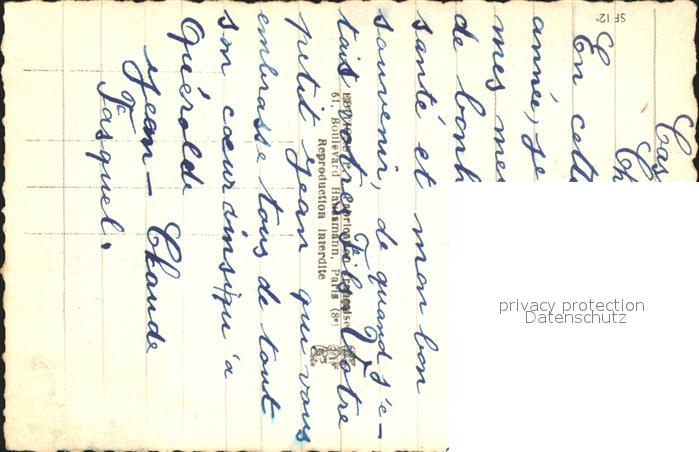 Cas
Ch
En cett
année, je
mes mei
de bonh
santé et mon bon
souvenir, de quand j'é-
tais votre fils. Votre
petit Jean qui vous
embrasse tous de tout
son cœur ainsi qu'à
Quérolde
Jean-Claude
Fasquel.
61, Boulevard Haussmann, Paris (8e)
Reproduction Interdite
SF 12
privacy protection
Datenschutz